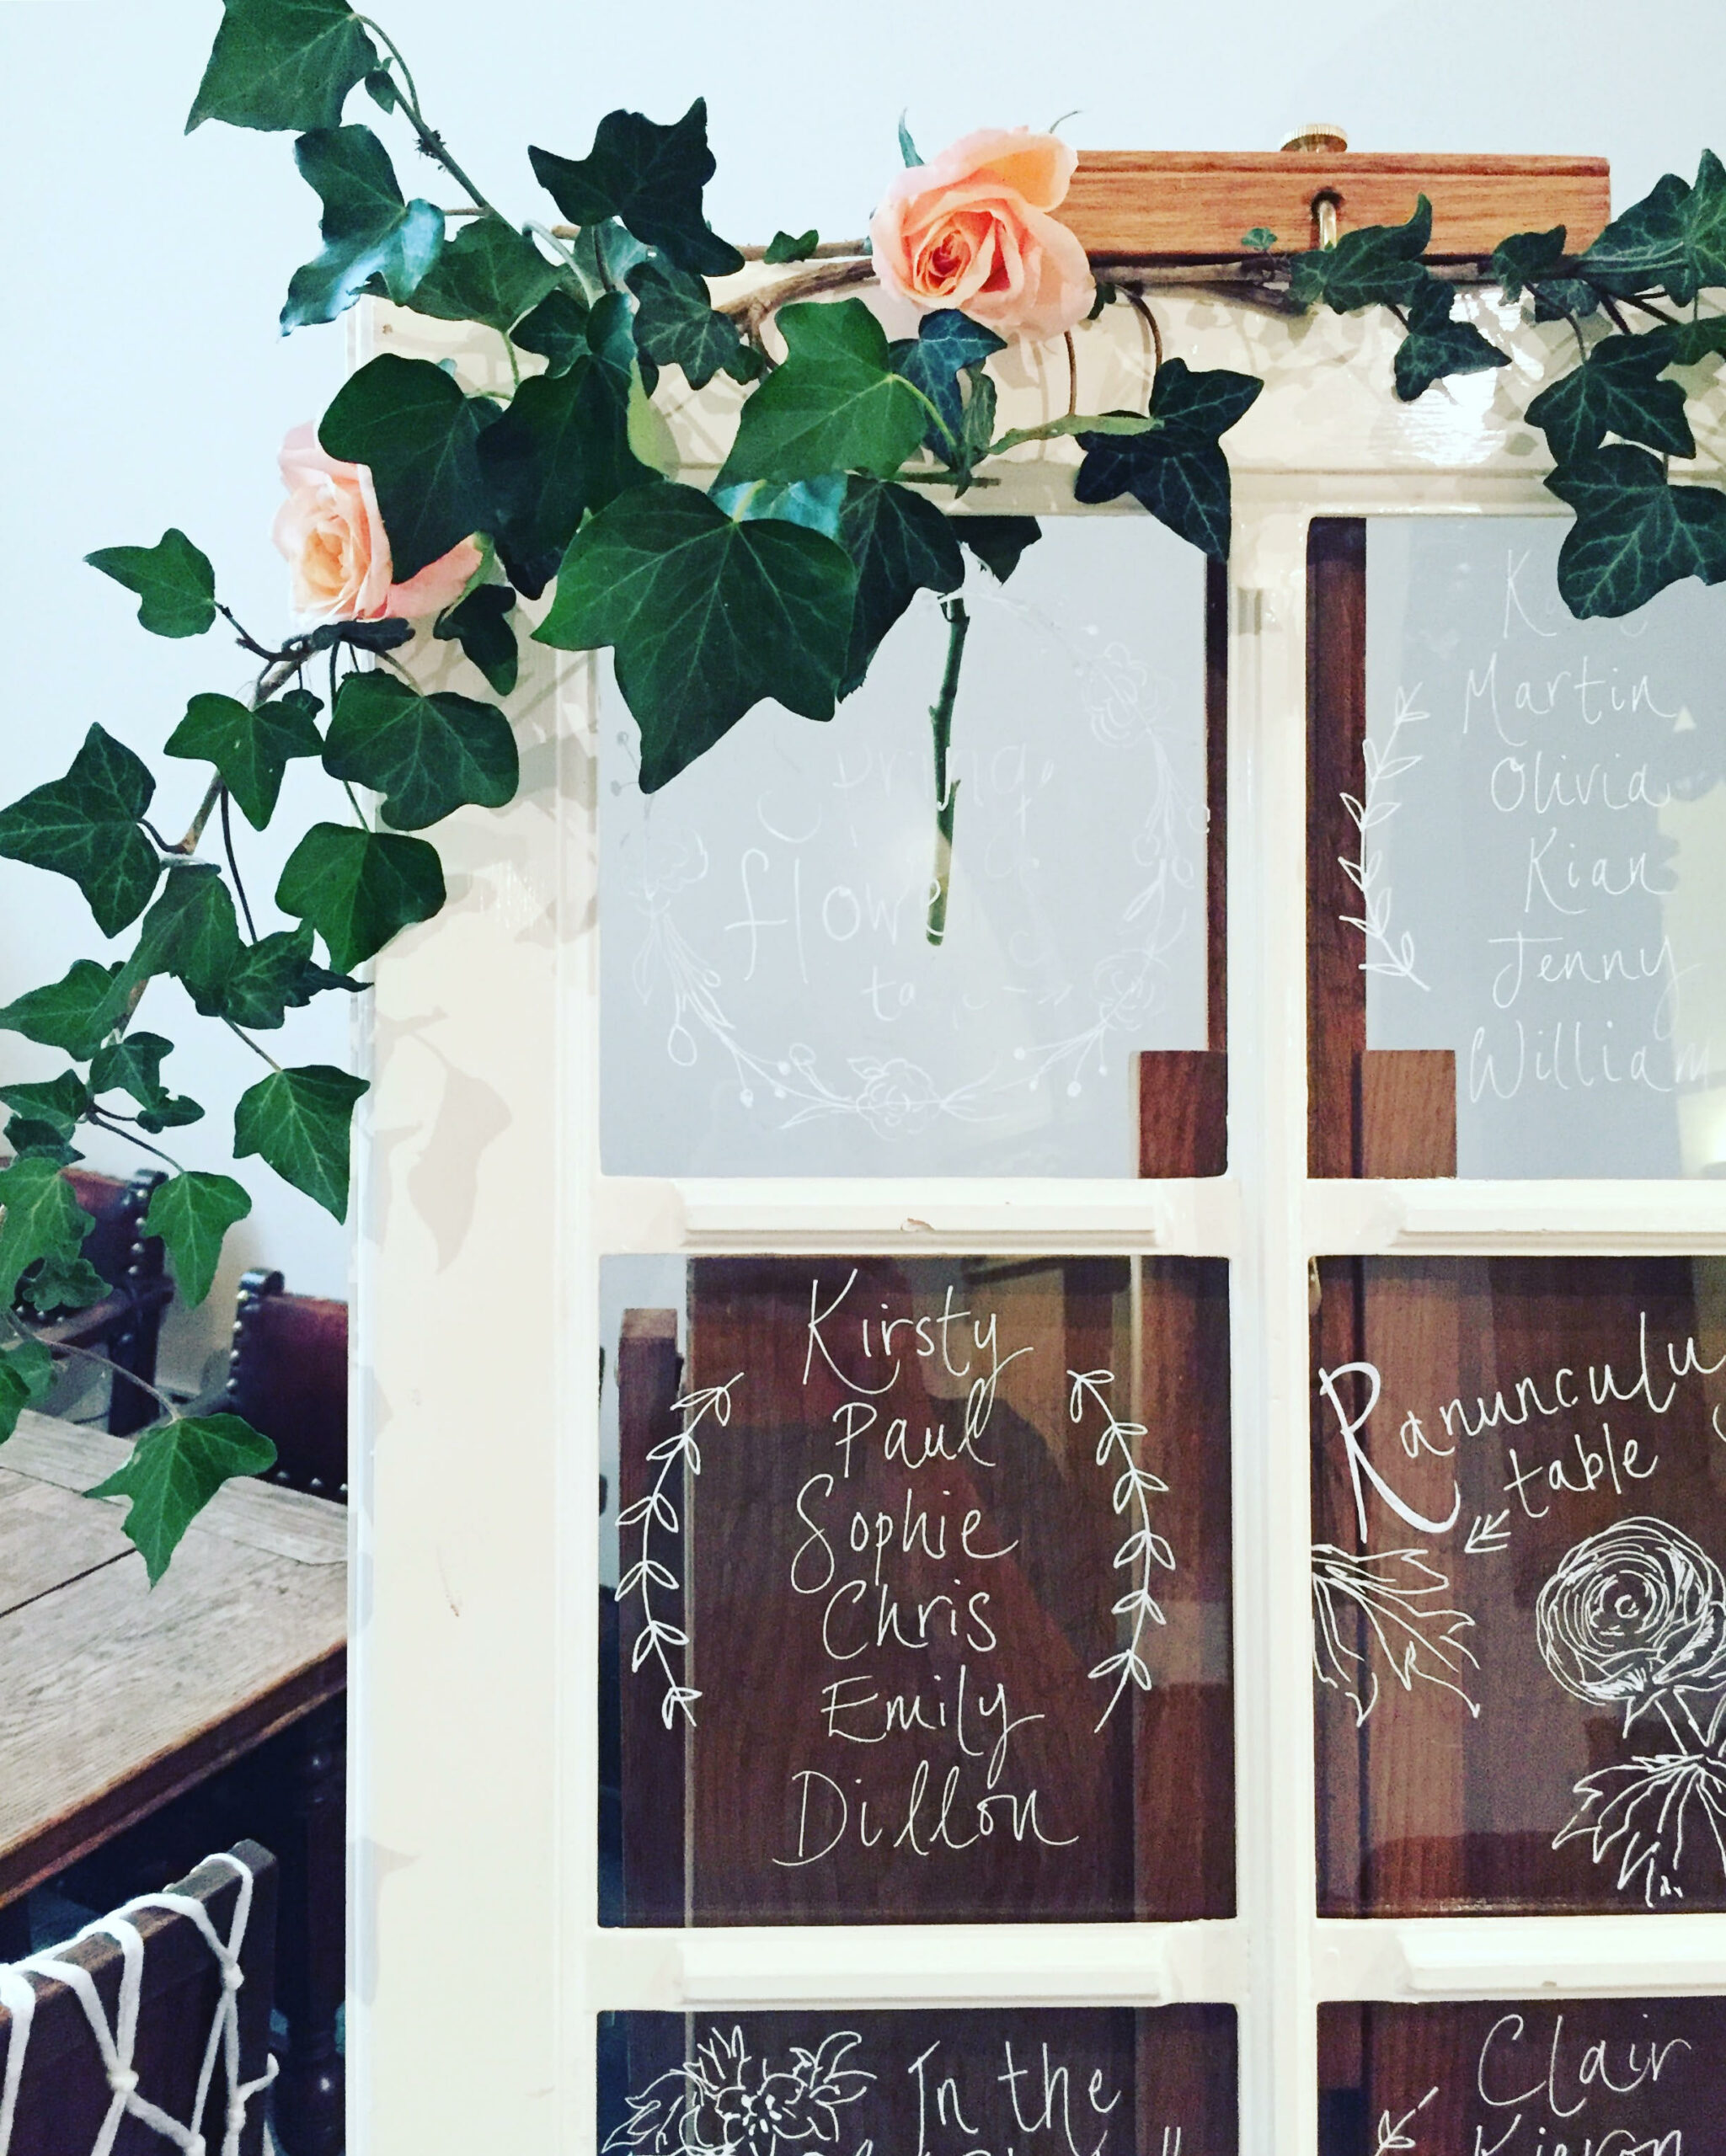 Spring
flower
Martin
Olivia
Kian
Jenny
William
Kirsty
Paul
Sophie
Chris
Emily
Dillon
Ranunculus
table
In the
Clair
Kieron